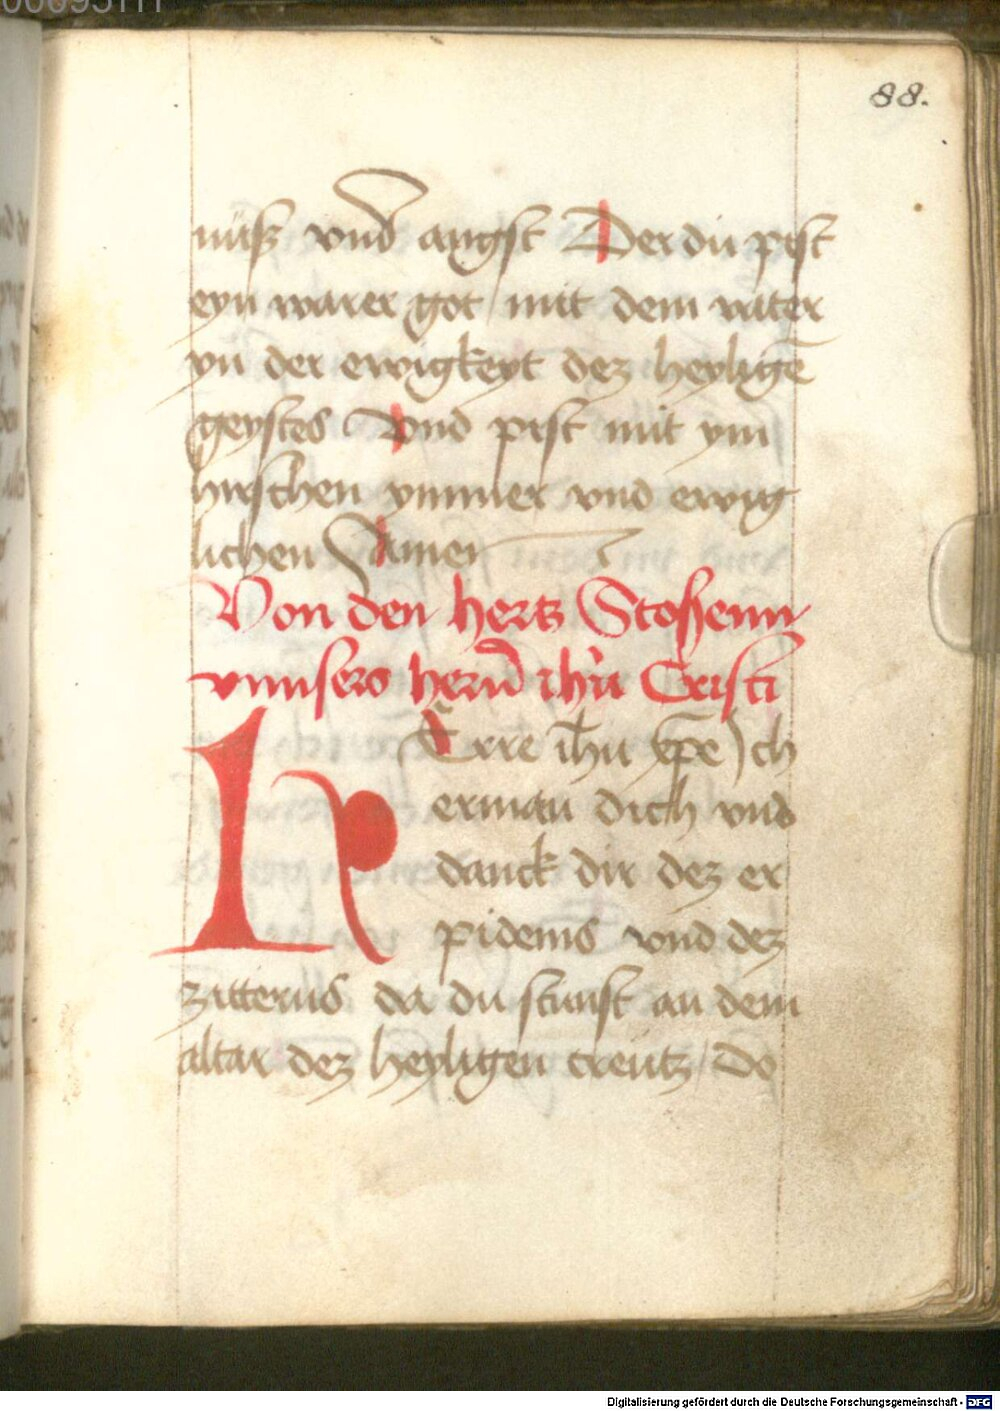 88.
nüß vnd angst Der du pist
eyn warer got / mit dem vater
yn der ewigkeyt dez heyligē
geystes Vnd pist mit ym
hirschen ymmer vnd ewig
lichen Amen
Von den hertz Stoßenn
vnnsers herñ ihu Cristi
H Erre ihu xpe Ich
erman dich vnd
danck dir dez er
pidems vnd dez
zitterns da du stunst an dem
altar dez heyligen creutz / Do
Digitalisierung gefördert durch die Deutsche Forschungsgemeinschaft - DFG